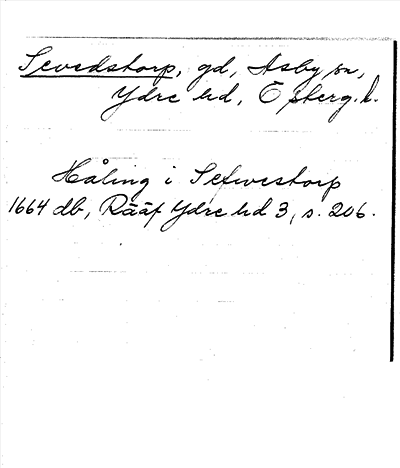 Sevedstorp, gd, Asby sn,
Ydre hd, Ö sterg. l.
Håling i Sefwestorp
1664 db, Rääf Ydre hd 3, s. 206.